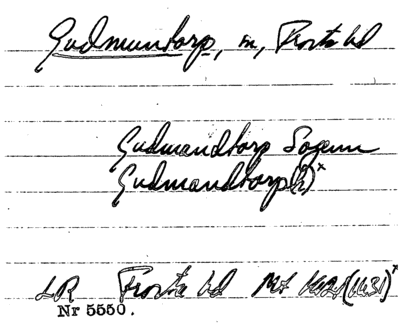 Gudmuntorp, sn, Frosta hd
Gudmandtorp Sogenn
Gudmandtorp (2)x
LR Frosta hd Mt 1621 (1631)x
Nr 5550.